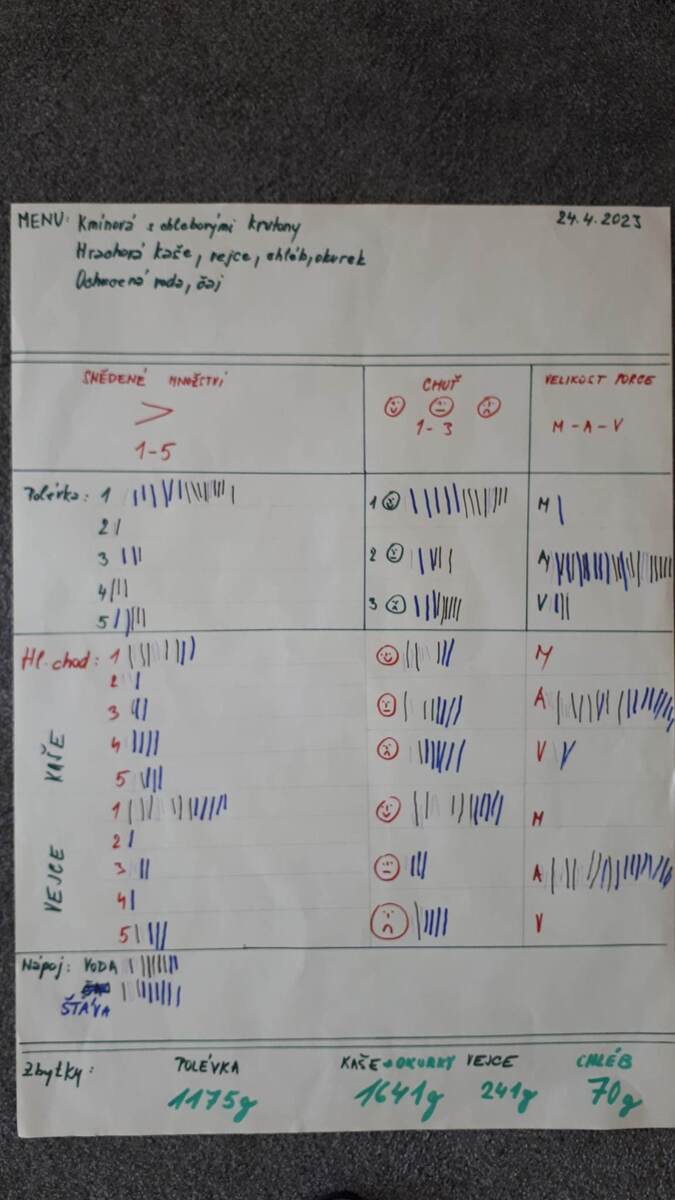 MENU: Kmínová s chlebovými krutony
24.4.2023
Hrachová kaše, vejce, chléb, okurek
Ochucená voda, čaj
SNĚDENÉ MNOŽSTVÍ
CHUŤ
VELIKOST PORCE
>
1-5
1-3
M-A-V
Polévka: 1
1
M
2
3
2
A
4
5
3
V
Hl. chod: 1
M
2
3
A
KAŠE
4
V
5
1
M
2
VEJCE
3
A
4
5
V
Nápoj: VODA
ŠŤÁVA
Zbytky:
POLÉVKA
KAŠE+OKURKY
VEJCE
CHLÉB
1175g
1641g
241g
70g